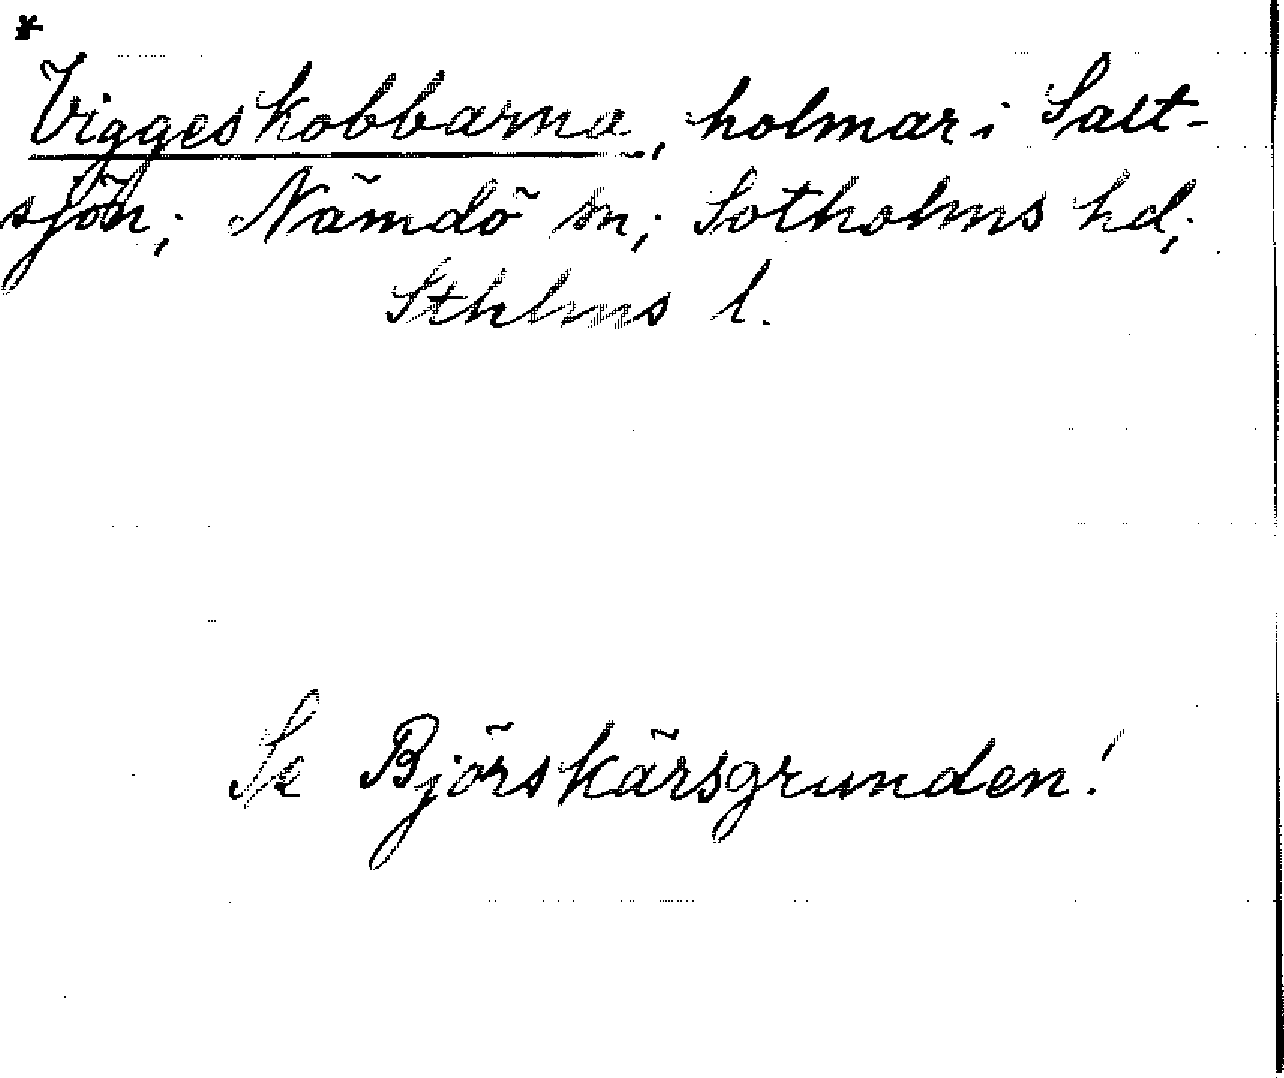 *
Viggeskobbarna, holmar i Salt-
sjön; Nämdö sn; Sotholms hd;
Sthlms l.
Se Björskärsgrunden!